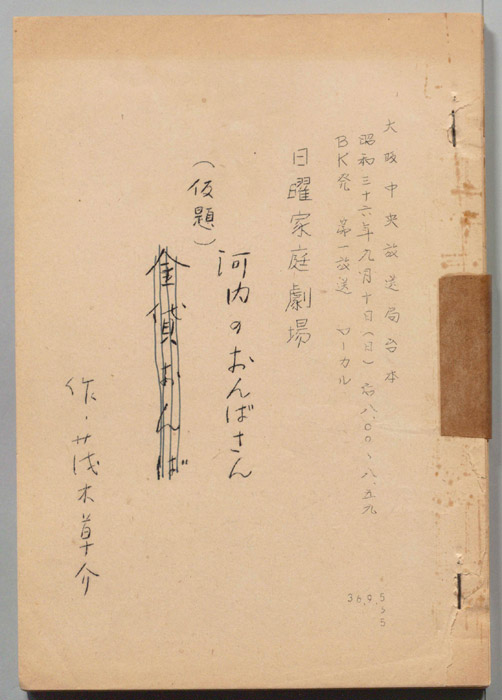 大阪中央放送局台本
昭和三十六年九月十日(日) 后八.〇〇〜八.五九
BK発 第一放送 ローカル
日曜家庭劇場
河内のおんばさん
(仮題)
金貸おんば
作・茂木草介
36.9.5